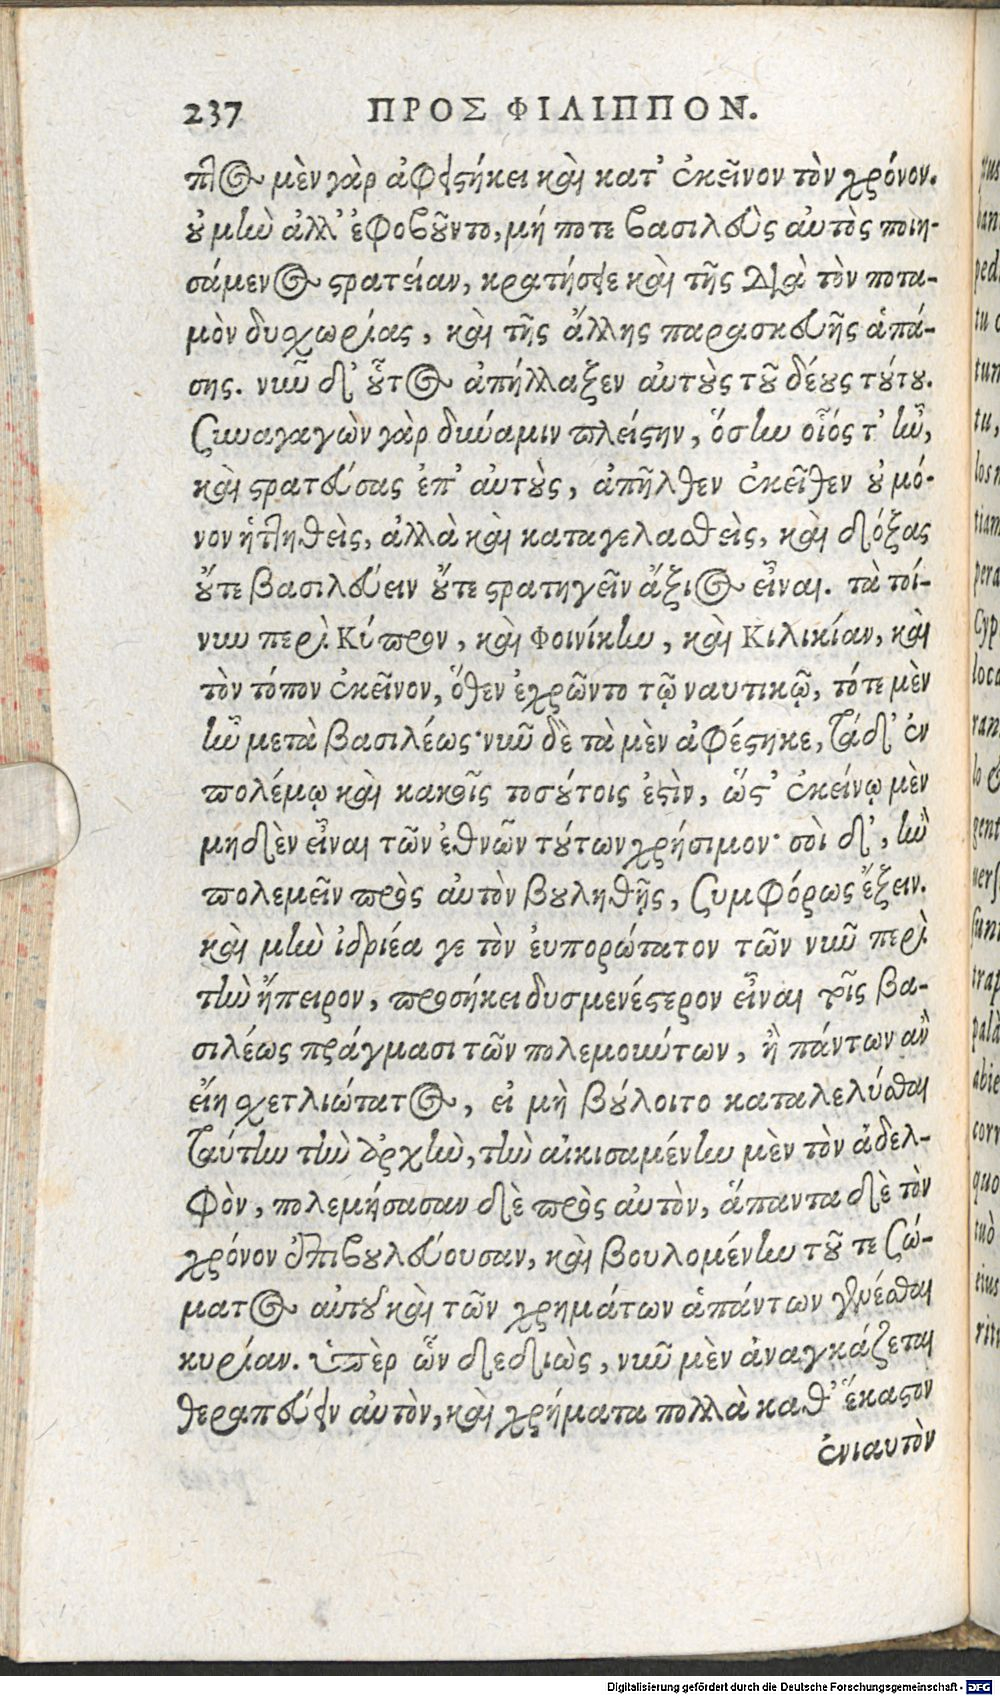 237 ΠΡΟΣ ΦΙΛΙΠΠΟΝ.
πτος μὲν γὰρ ἀφειστήκει καὶ κατ' ἐκεῖνον τὸν χρόνον.
οὐ μὴν ἀλλ' ἐφοβοῦντο, μή ποτε βασιλεὺς αὐτὸς ποιη-
σάμενος στρατείαν, κρατήσειε καὶ τῆς διὰ τὸν ποτα-
μὸν δυσχωρίας, καὶ τῆς ἄλλης παρασκευῆς ἁπά-
σης. νῦν δ' οὗτος ἀπήλλαξεν αὐτοὺς τοῦ δέους τούτου.
συναγαγὼν γὰρ δύναμιν πλείστην, ὅσην οἷός τ' ἦν,
καὶ στρατεύσας ἐπ' αὐτοὺς, ἀπῆλθεν ἐκεῖθεν οὐ μό-
νον ἡττηθεὶς, ἀλλὰ καὶ καταγελασθεὶς, καὶ δόξας
οὔτε βασιλεύειν οὔτε στρατηγεῖν ἄξιος εἶναι. τὰ τοί-
νυν περὶ Κύπρον, καὶ Φοινίκην, καὶ Κιλικίαν, καὶ
τὸν τόπον ἐκεῖνον, ὅθεν ἐχρῶντο τῷ ναυτικῷ, τότε μὲν
ἦν μετὰ βασιλέως· νῦν δὲ τὰ μὲν ἀφέστηκε, τά δ' ἐν
πολέμῳ καὶ κακοῖς τοσούτοις ἐστὶν, ὥστ' ἐκείνῳ μὲν
μηδὲν εἶναι τῶν ἐθνῶν τούτων χρήσιμον· σοὶ δ', ἢν
πολεμεῖν πρὸς αὐτὸν βουληθῇς, συμφόρως ἕξειν.
καὶ μὴν ἰδριέα γε τὸν εὐπορώτατον τῶν νῦν περὶ
τὴν ἤπειρον, προσήκει δυσμενέστερον εἶναι τοῖς βα-
σιλέως πράγμασι τῶν πολεμούντων, ἢ πάντων ἂν
εἴη σχετλιώτατος, εἰ μὴ βούλοιτο καταλελύσθαι
ταύτην τὴν ἀρχὴν, τὴν αἰκισαμένην μὲν τὸν ἀδελ-
φὸν, πολεμήσασαν δὲ πρὸς αὐτὸν, ἅπαντα δὲ τὸν
χρόνον ἐπιβουλεύουσαν, καὶ βουλομένην τοῦ τε σώ-
ματος αὐτοῦ καὶ τῶν χρημάτων ἁπάντων γενέσθαι
κυρίαν. ὑπὲρ ὧν δεδιὼς, νῦν μὲν ἀναγκάζεται
θεραπεύειν αὐτὸν, καὶ χρήματα πολλὰ καθ' ἕκαστον
ἐνιαυτὸν
Digitalisierung gefördert durch die Deutsche Forschungsgemeinschaft - DFG